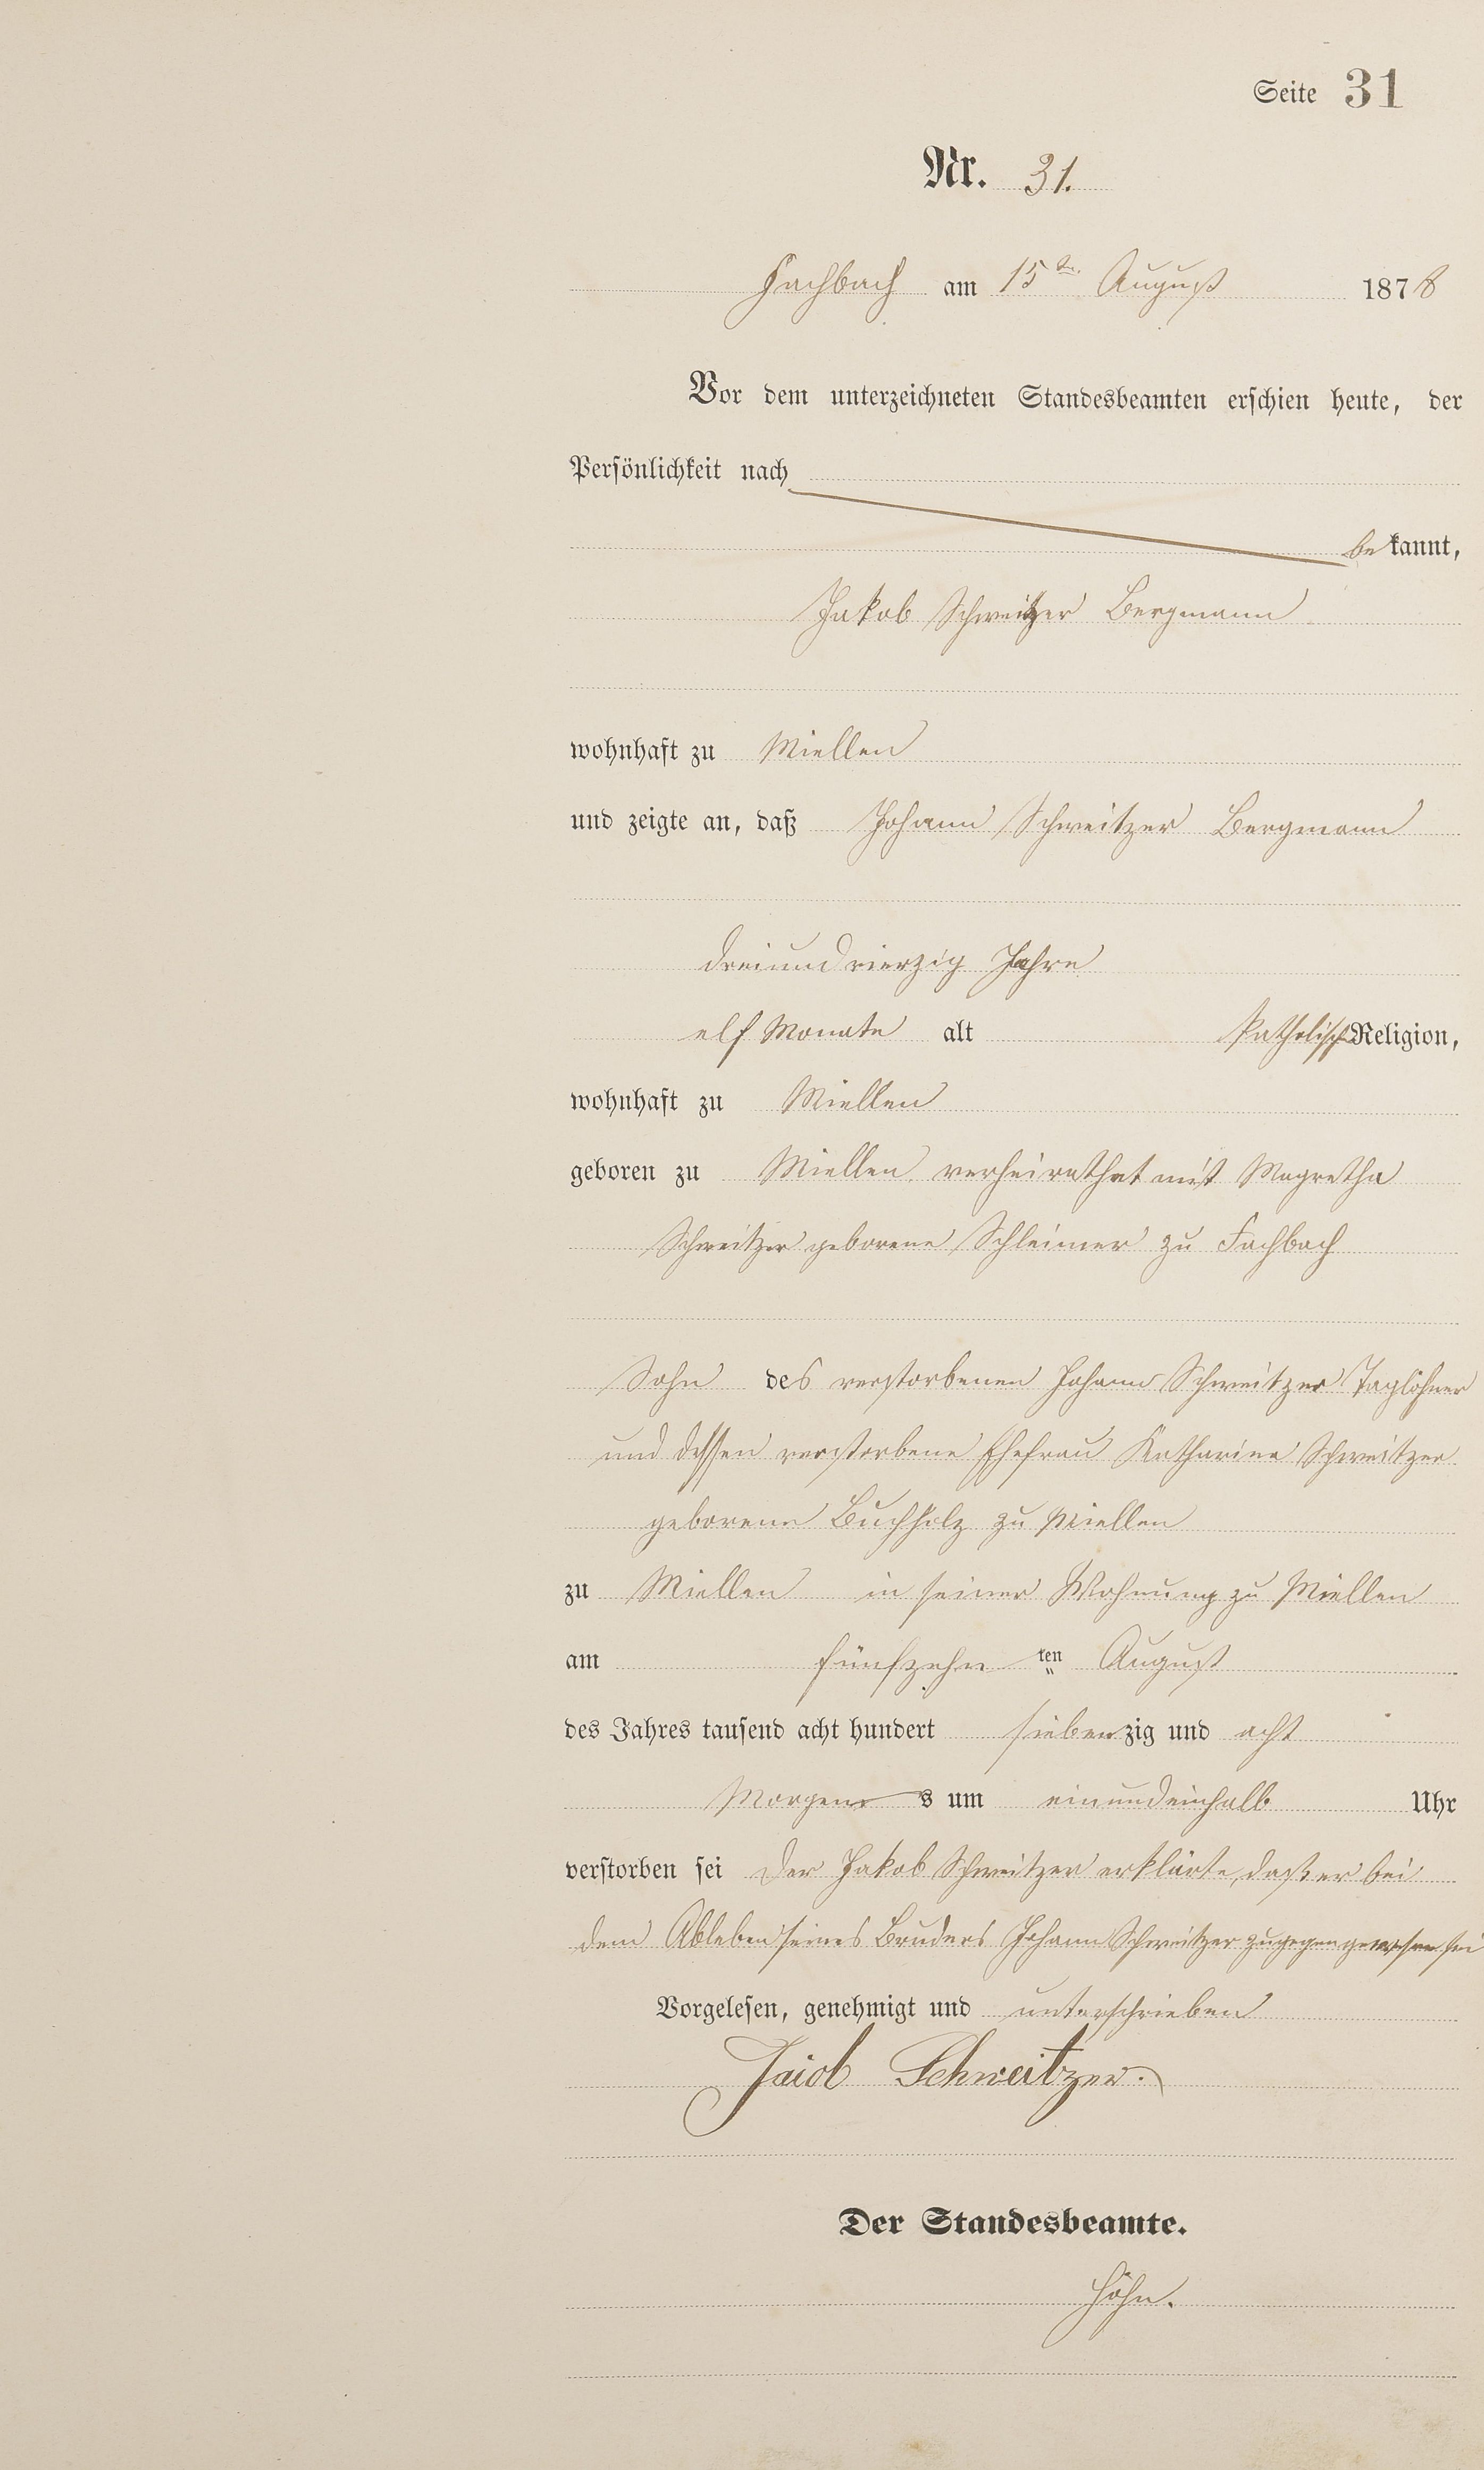 Seite 31
Nr. 31.
Fachbach am 15ten August 1878
Vor dem unterzeichneten Standesbeamten erschien heute, der
Persönlichkeit nach
bekannt,
Jakob Schweitzer Bergmann
wohnhaft zu Miellen
und zeigte an, daß Johann Schweitzer Bergmann
dreiundvierzig Jahre
elf Monate alt katholisch Religion,
wohnhaft zu Miellen
geboren zu Miellen verheirathet mit Magretha
Schweitzer geborene Schleimer zu Fachbach
Sohn des verstorbenen Johann Schweitzer Taglöhner
und dessen verstorbene Ehefrau Katharina Schweitzer
geborene Buchholz zu Miellen
zu Miellen in seiner Wohnung zu Miellen
am fünfzehnten August
des Jahres tausend acht hundert siebenzig und acht
Morgens um einundeinhalb Uhr
verstorben sei Der Jakob Schweitzer erklärte, daß er bei
dem Ableben seines Bruders Johann Schweitzer zugegen gewesen sei
Vorgelesen, genehmigt und unterschrieben
Jacob Schweitzer.
Der Standesbeamte.
Höhn.